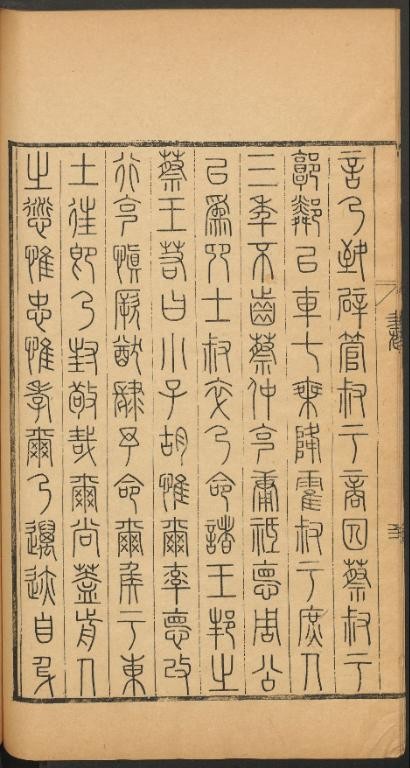 言乃致辟管叔于商囚蔡叔于
郭鄰以車七乘降霍叔于庶人
三年不齒蔡仲克庸祗悳周公
以為卿士叔卒乃命諸王邦之
蔡王若曰小子胡惟爾率悳改
行克慎厥猷肆予命爾侯于東
土往即乃封敬哉爾尚蓋前人
之愆惟忠惟孝爾乃邁迹自身